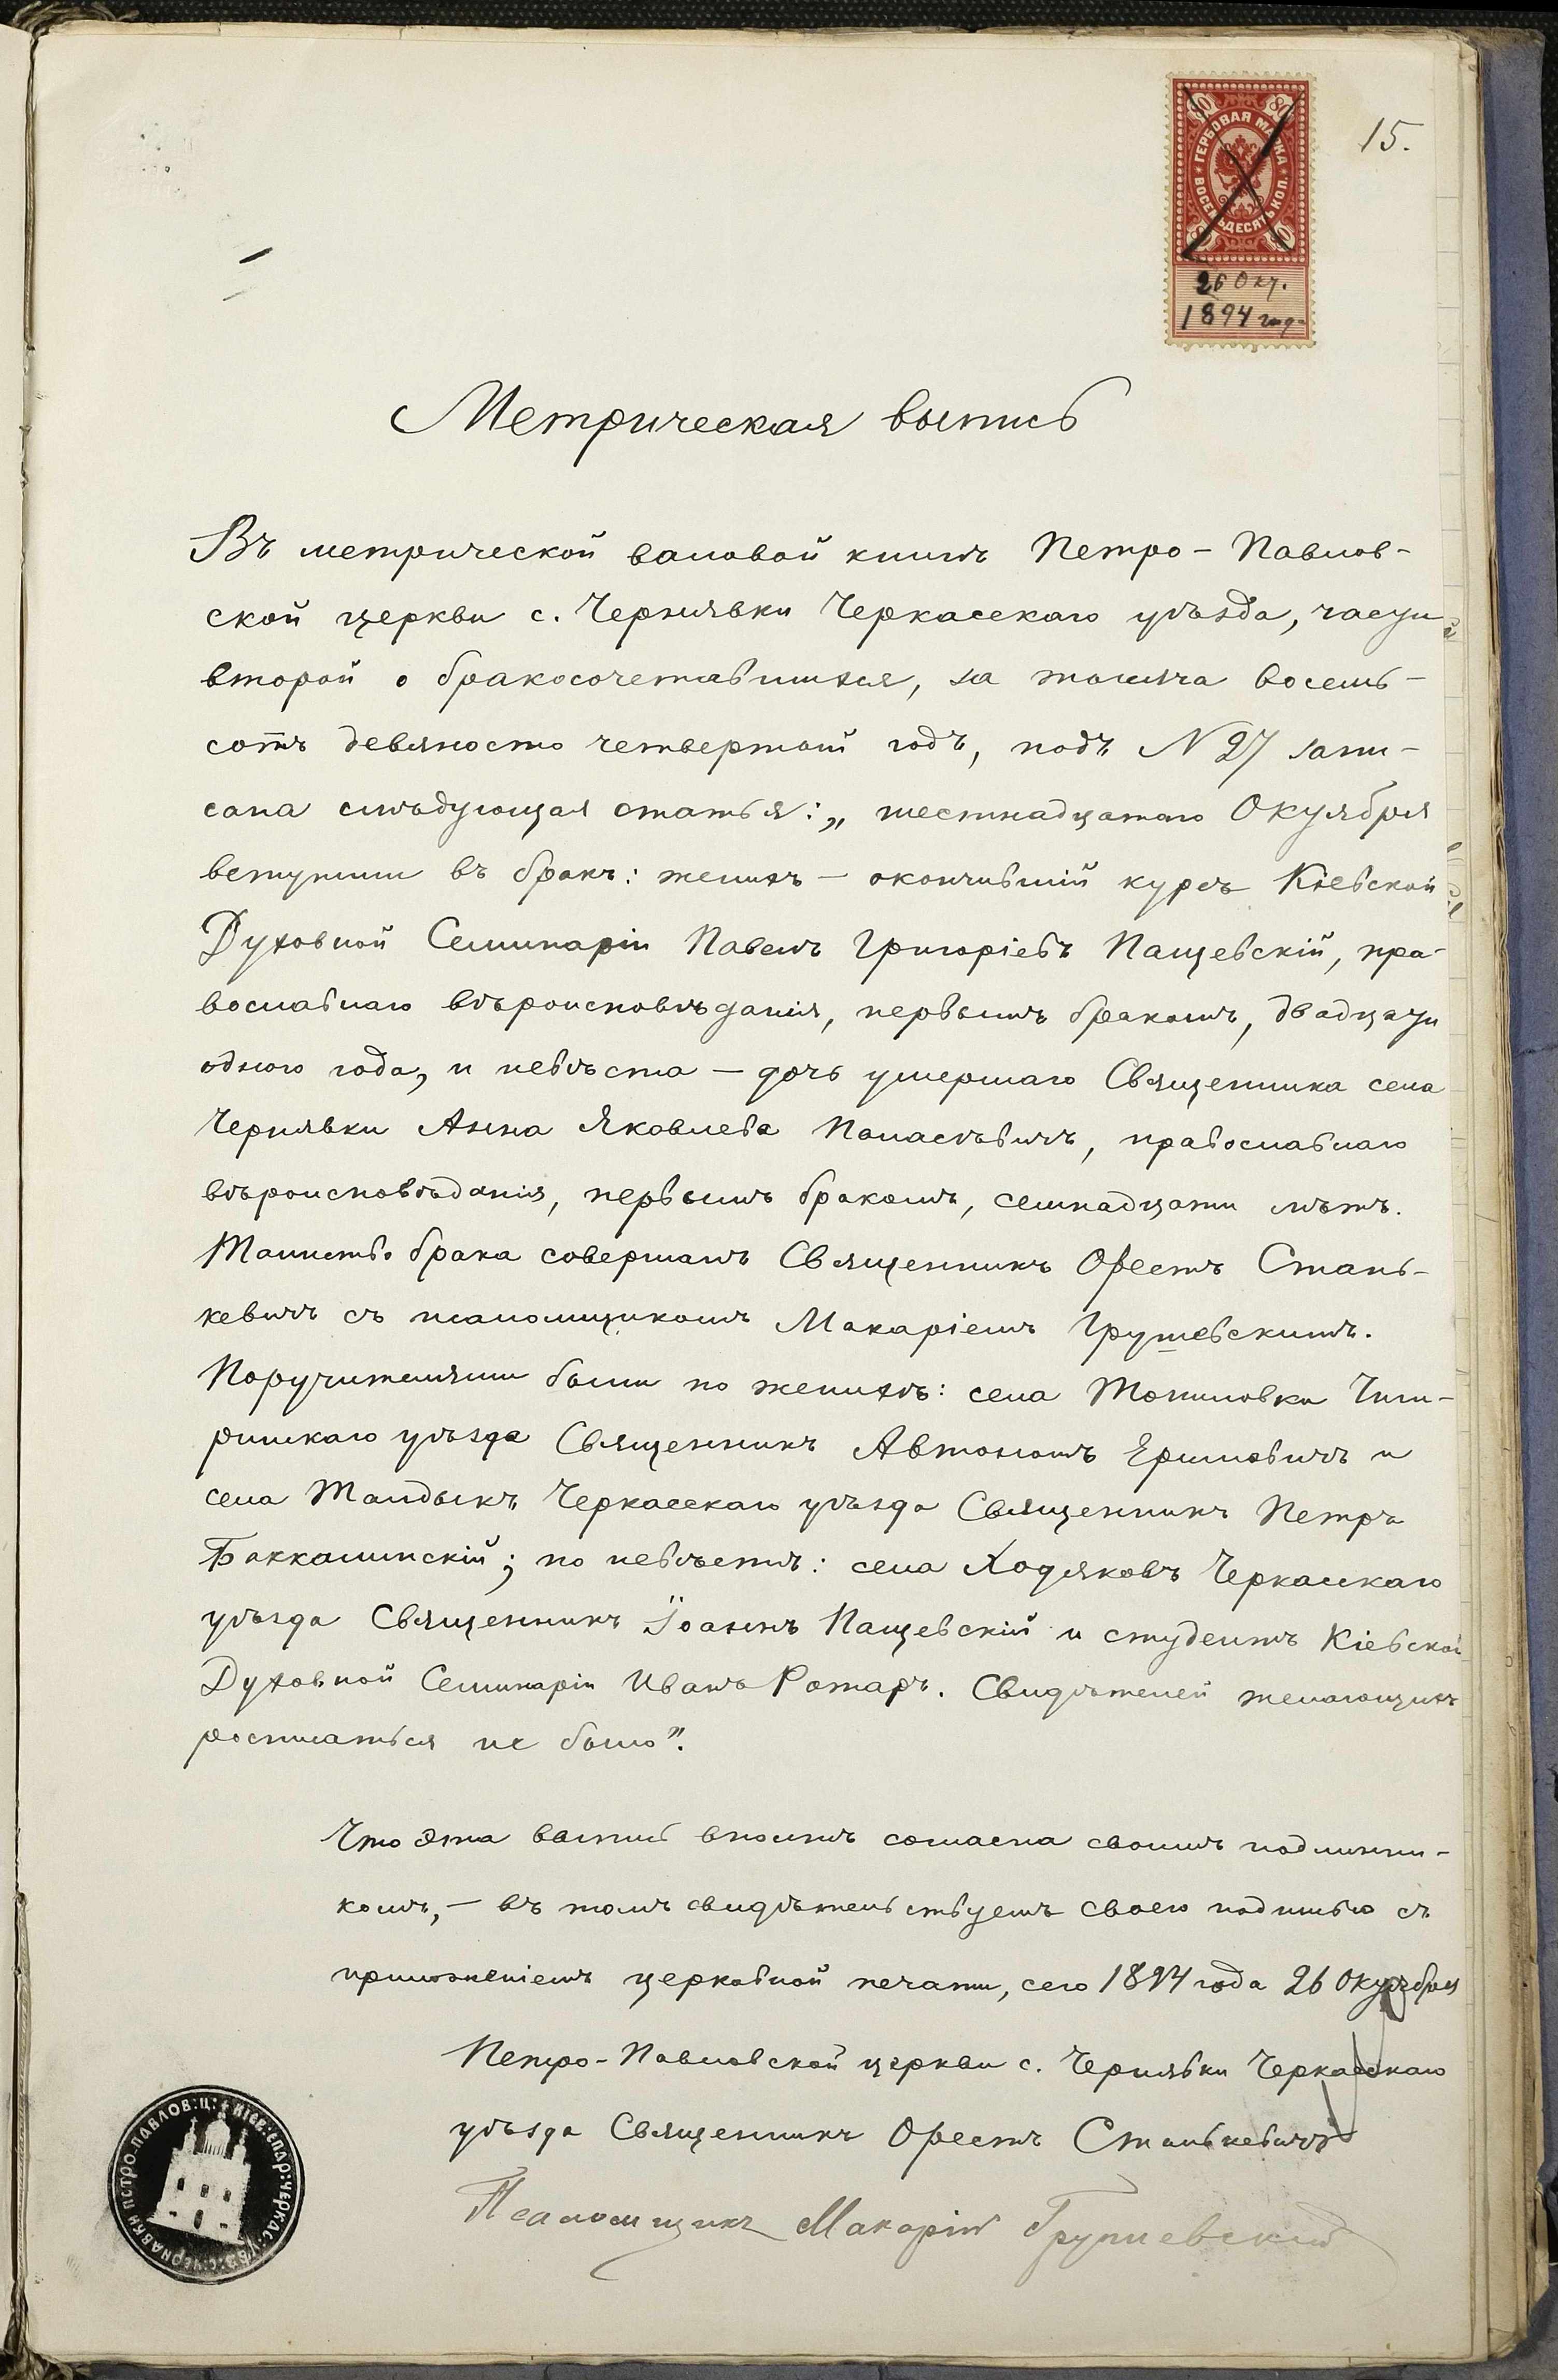 15.
80 80
ГЕРБОВАЯ МАРКА
ВОСЕМЬДЕСЯТЪ КОП.
26 Окт.
1894 года
Метрическая выпись
Въ метрической валовой книгѣ Петро-Павлов-
ской церкви с. Чернявки Черкасскаго уѣзда, части
второй о бракосочетавшихся, за тысяча восемь-
сотъ девяносто четвертый годъ, подъ N 27 запи-
сана слѣдующая статья: „шестнадцатаго Октября
вступили въ бракъ: женихъ – окончившій курсъ Кіевской
Духовной Семинаріи Павелъ Григоріевъ Пащевскій, пра-
вославнаго вѣроисповѣданія, первымъ бракомъ, двадцати
одного года, и невѣста – дочь умершаго Священника села
Чернявки Анна Яковлева Понасѣвичъ, православнаго
вѣроисповѣданія, первымъ бракомъ, семнадцати лѣтъ.
Таинство брака совершалъ Священникъ Орестъ Стань-
кевичъ съ псаломщикомъ Макаріемъ Грушевскимъ.
Поручителями были по женихѣ: села Топиловки Чиги-
ринскаго уѣзда Священникъ Автономъ Ериновичъ и
села Талдыкъ Черкасскаго уѣзда Священникъ Петръ
Баккалинскій; по невѣстѣ: села Ходяковъ Черкасскаго
уѣзда Священникъ Іоаннъ Пащевскій и студентъ Кіевской
Духовной Семинаріи Иванъ Ротаръ. Свидѣтелей желающихъ
росписаться не было".
Что эта выпись вполнѣ согласна своимъ подлинни-
комъ, – въ томъ свидѣтельствуемъ своею подписью съ
приложеніемъ церковной печати, сего 1894 года 26 Октября
Петро-Павловской церкви с. Чернявки Черкасскаго
уѣзда Священникъ Орестъ Станькевичъ
Псаломщикъ Макарій Грушевскій
ПЕТРО-ПАВЛОВ: Ц: КІЕВ: ЕПАР: ЧЕРКАС: УѢЗ: С: ЧЕРНАВКИ